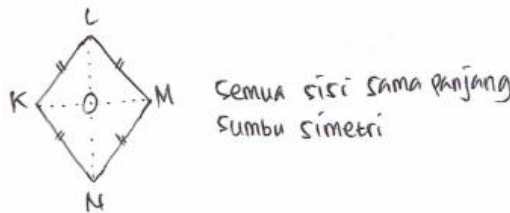 L
K O M
N
semua sisi sama panjang
sumbu simetri